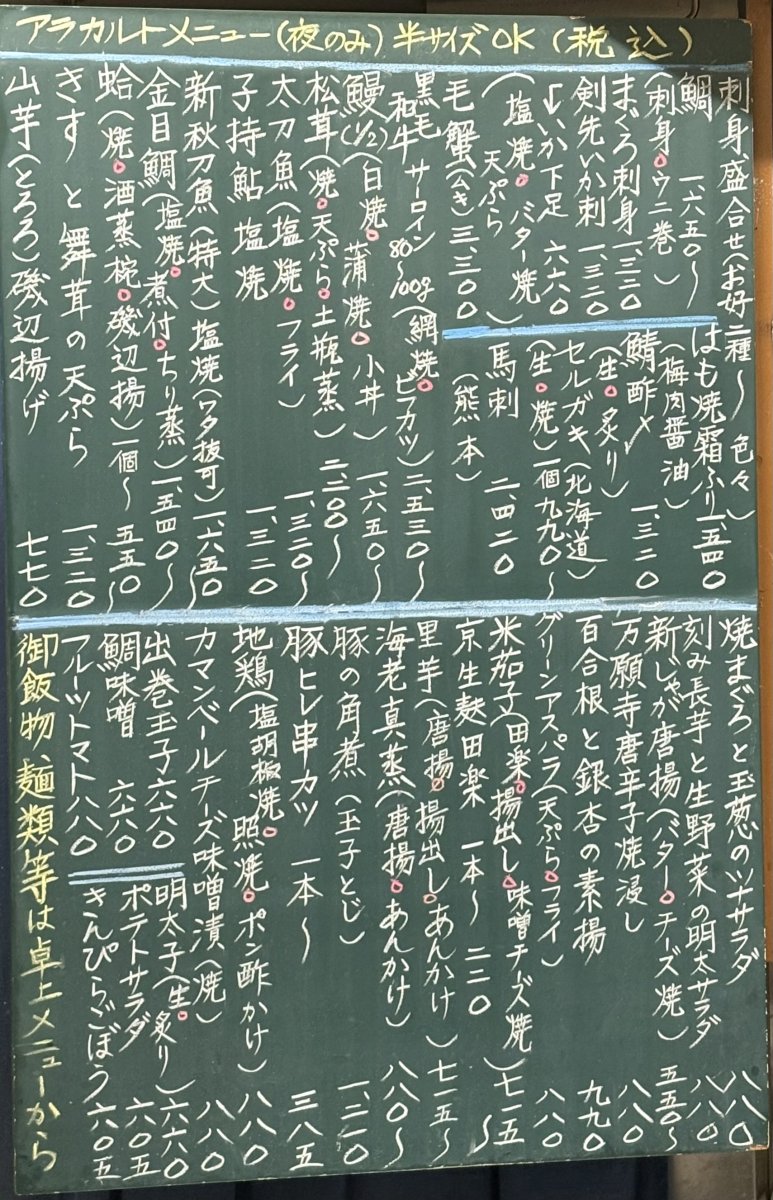 アラカルトメニュー(夜のみ)半サイズOK(税込)
刺身盛合せ(お好二種〜色々)
鯛 一、六五〇〜
(刺身。ウニ巻)
まぐろ刺身 一、三二〇
剣先いか刺 一、三二〇
↓いか下足 六六〇
(塩焼。バター焼
天ぷら)
毛蟹(ムキ)三、三〇〇
はも焼霜ふり 一、五四〇
(梅肉醤油)
鯖酢〆 一、三二〇
(生。炙り)
セルガキ(北海道)
(生。焼)一個九九〇〜
馬刺 二、四二〇
(熊本)
黒毛和牛サーロイン80〜100g(網焼。ビフカツ)二、五三〇〜
鰻(1/2)(白焼。蒲焼。小丼)一、六五〇〜
松茸(焼。天ぷら。土瓶蒸)二、二〇〇〜
太刀魚(塩焼。フライ)一、三二〇〜
子持鮎塩焼 一、三二〇
新秋刀魚(特大)塩焼(ワタ抜可)一、六五〇
金目鯛(塩焼。煮付。ちり蒸)一、五四〇〜
蛤(焼。酒蒸椀。磯辺揚)一個〜五五〇〜
きすと舞茸の天ぷら 一、三二〇
山芋(とろろ)磯辺揚げ 七七〇
焼まぐろと玉葱のツナサラダ 八八〇
刻み長芋と生野菜の明太サラダ 八八〇
新じゃが唐揚(バター。チーズ焼)五五〇〜
万願寺唐辛子焼浸し 八八〇
百合根と銀杏の素揚 九九〇
グリーンアスパラ(天ぷら。フライ)八八〇
米茄子(田楽。揚出し。味噌チーズ焼)七一五
京生麩田楽 一本〜二二〇〜
里芋(唐揚。揚出し。あんかけ)七一五〜
海老真蒸(唐揚。あんかけ)八八〇〜
豚の角煮(玉子とじ)一、二一〇
豚ヒレ串カツ 一本〜 三八五
地鶏(塩胡椒焼。照焼。ポン酢かけ)八八〇
カマンベールチーズ味噌漬(焼)八八〇
出巻玉子 六六〇
鯛味噌 六六〇
フルーツトマト 八八〇
明太子(生。炙り)六六〇
ポテトサラダ 六〇五
きんぴらごぼう 六〇五
御飯物、麺類等は卓上メニューから